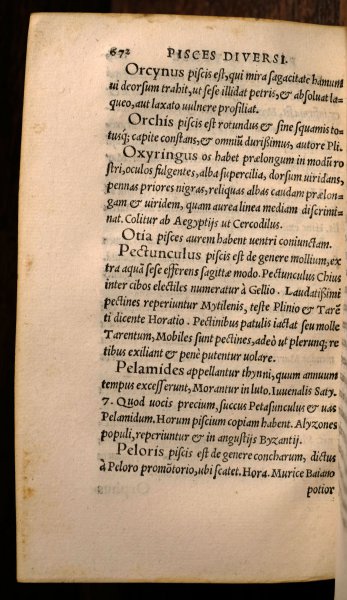 672 PISCES DIVERSI.
Orcynus piscis est, qui mira sagacitate hamum
ui deorsum trahit, ut sese illidat petris, & absoluat la=
queo, aut laxato uulnere prosiliat.
Orchis piscis est rotundus & sine squamis to=
tusq; capite constans, & omniũ durißimus, autore Pli.
Oxyringus os habet prælongum in modũ ro
stri, oculos fulgentes, alba supercilia, dorsum uiridans,
pennas priores nigras, reliquas albas caudam prælon=
gam & uiridem, quam aurea linea mediam discrimi=
nat. Colitur ab Aegyptijs ut Cercodilus.
Otia pisces aurem habent uentri coniunctam.
Pectunculus piscis est de genere mollium, ex
tra aquã sese efferens sagittæ modo. Pectunculus Chius
inter cibos electiles numeratur à Gellio. Laudatißimi
pectines reperiuntur Mytilenis, teste Plinio & Tarẽ
ti dicente Horatio. Pectinibus patulis iactat se u molle
Tarentum, Mobiles sunt pectines, adeò ut plerunq; re
tibus exiliant & penè putentur uolare.
Pelamides appellantur thynni, quum annuum
tempus excesserunt, Morantur in luto. Iuuenalis Saty.
7. Quod uocis precium, succus Petasunculus & uas
Pelamidum. Horum piscium copiam habent. Alyzones
populi, reperiuntur & in angustijs Byzantij.
Peloris piscis est de genere concharum, dictus
à Peloro promõtorio, ubi scatet. Hora. Murice Baiano
potior